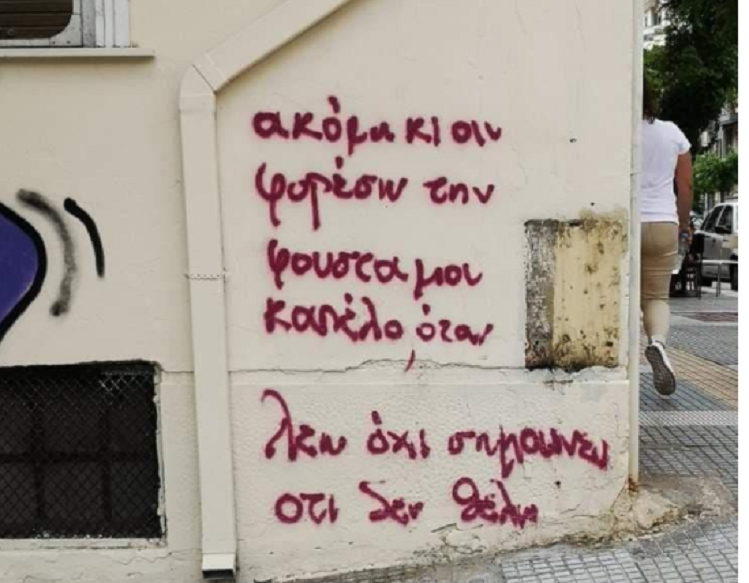 ακόμα κι αν
φορέσω την
φουστα μου
καπέλο, όταν
λέω όχι σημαινει
οτι δεν θέλω